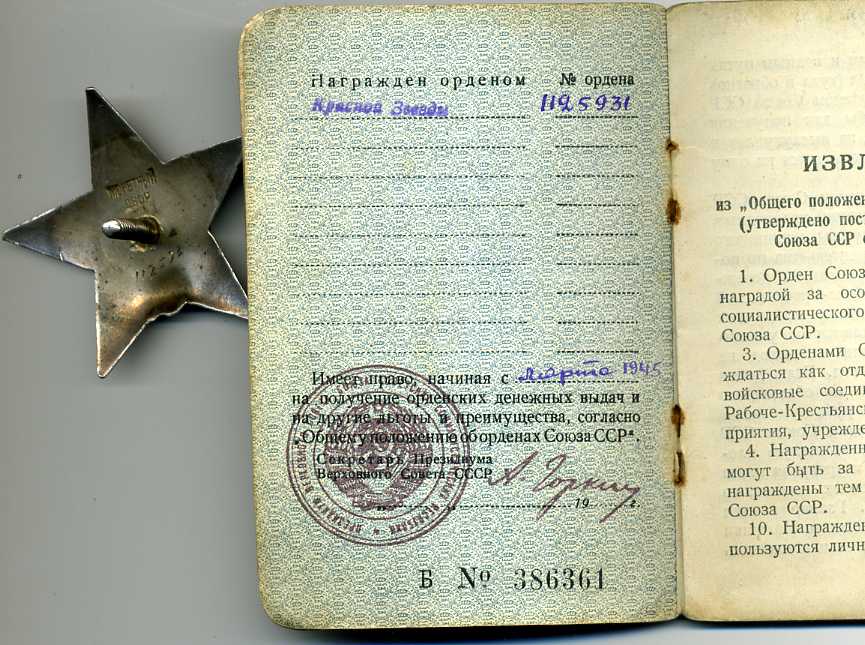 МОНЕТНЫЙ
ДВОР
Награжден орденом № ордена
Красной Звезды 1125931
Имеет право, начиная с марта 1945
на получение орденских денежных выдач и
на другие льготы и преимущества, согласно
„Общему положению об орденах Союза ССР“.
Секретарь Президиума
Верховного Совета СССР А. Горкин
19 г.
Б № 386361
ИЗВЛ
из „Общего положен
(утверждено пост
Союза ССР
1. Орден Союз
наградой за осо
социалистического
Союза ССР.
3. Орденами С
ждаться как отд
войсковые соеди
Рабоче-Крестьянс
приятия, учрежде
4. Награжденн
могут быть за
награждены тем
Союза ССР.
10. Награжде
пользуются личн